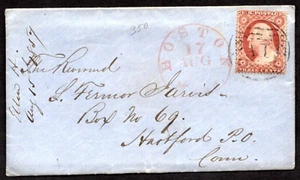 350
BOSTON
17
AUG
The Reverend
L. Fermor Jarvis
Box No 69.
Hartford P.O.
Conn.
Aug 18